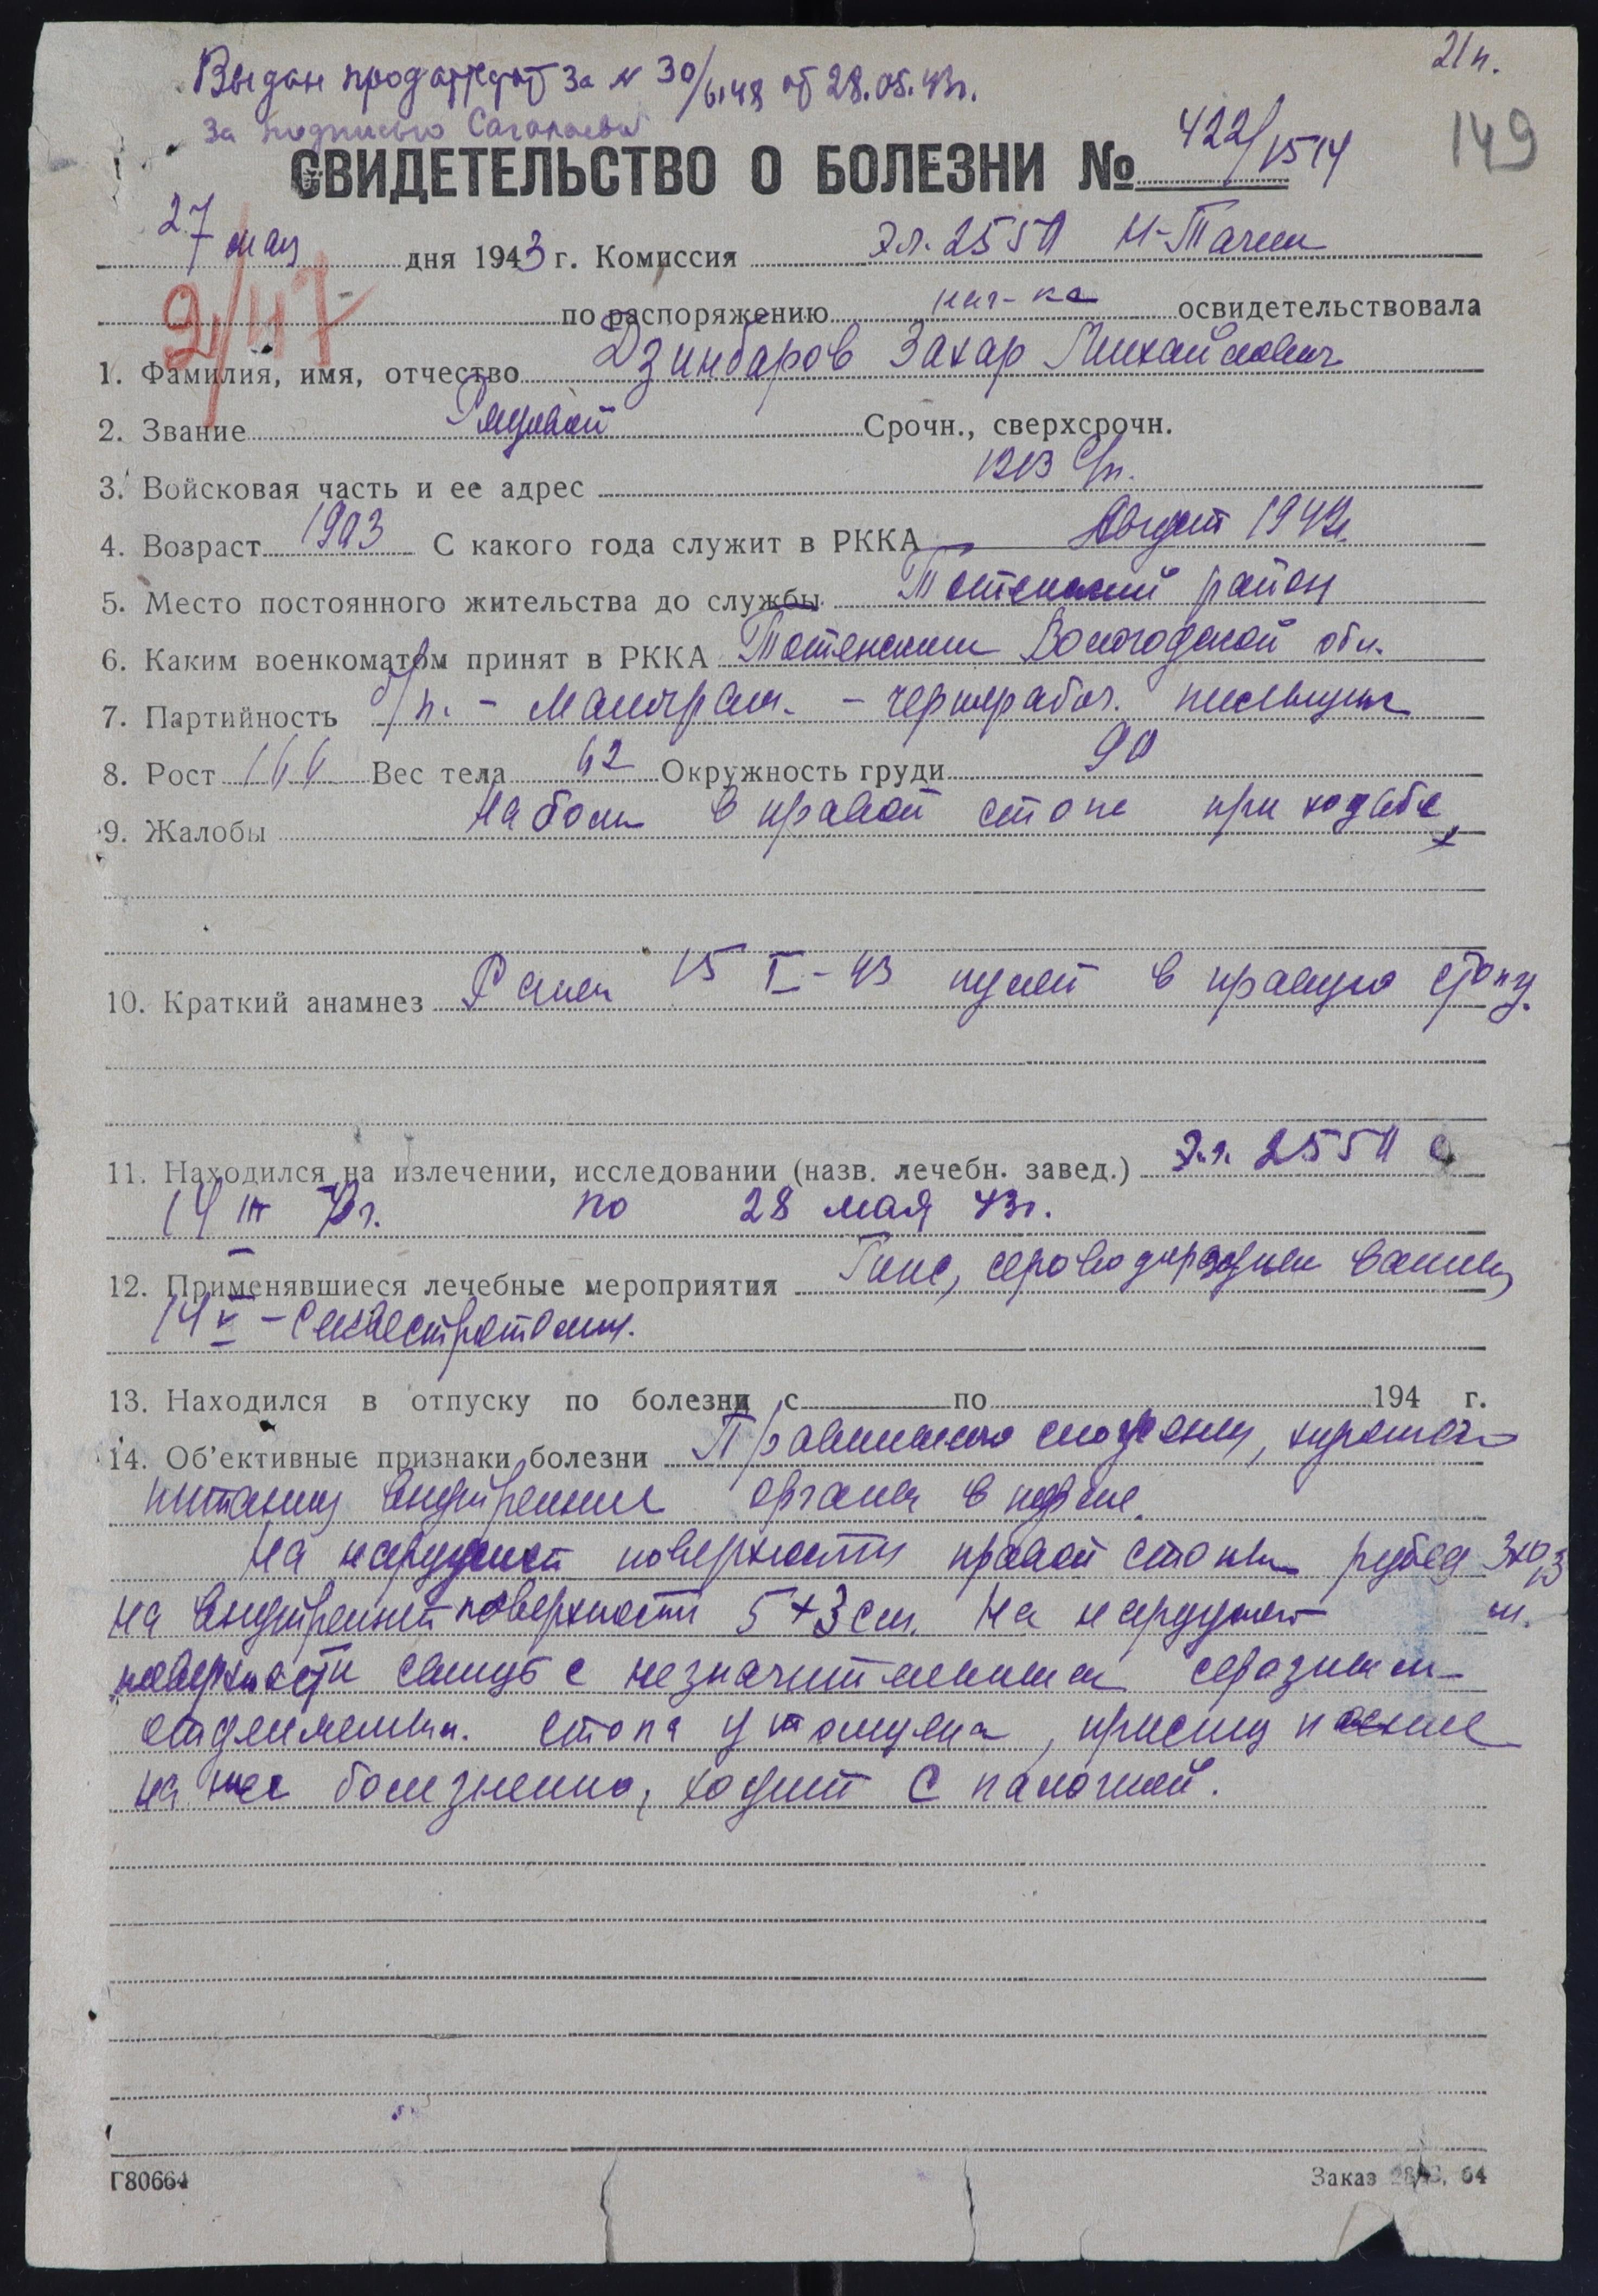 21п.
Выдан продаттестат за № 30/6148 от 28.05.43г.
за подписью
149
СВИДЕТЕЛЬСТВО О БОЛЕЗНИ № 422/1514
27 мая дня 1943 г. Комиссия э.г. 2550 Н-Тагил
9/47
по распоряжению нач-ка освидетельствовала
1. Фамилия, имя, отчество Дзинбаров Захар Михайлович
2. Звание Рядовой Срочн., сверхсрочн.
3. Войсковая часть и ее адрес 1213 с/п.
4. Возраст 1903 С какого года служит в РККА Август 1942г.
5. Место постоянного жительства до службы Тотемский район
6. Каким военкоматом принят в РККА Тотемским Вологодской обл.
7. Партийность б/п. - малограм. - чернорабоч.
8. Рост 166 Вес тела 62 Окружность груди 90
9. Жалобы На боли в правой стопе при ходьбе
10. Краткий анамнез Ранен 15 I-43 пулей в правую стопу.
11. Находился на излечении, исследовании (назв. лечебн. завед.) э.г. 2550 с
14 III 43г. по 28 мая 43г.
12. Применявшиеся лечебные мероприятия Гипс, сероводородные ванны,
14 V - секвестротомия.
13. Находился в отпуску по болезни с по 194 г.
14. Об'ективные признаки болезни Правильного сложения, хорошего
питания внутренние органы в норме.
На наружной поверхности правой стопы рубец
на внутренней поверхности 5+3 см. На наружной см.
поверхности свищь с незначительным серозным
отделяемым. Стопа утолщена,
на нее болезненно, ходит с палочкой.
Г80664
Заказ 64